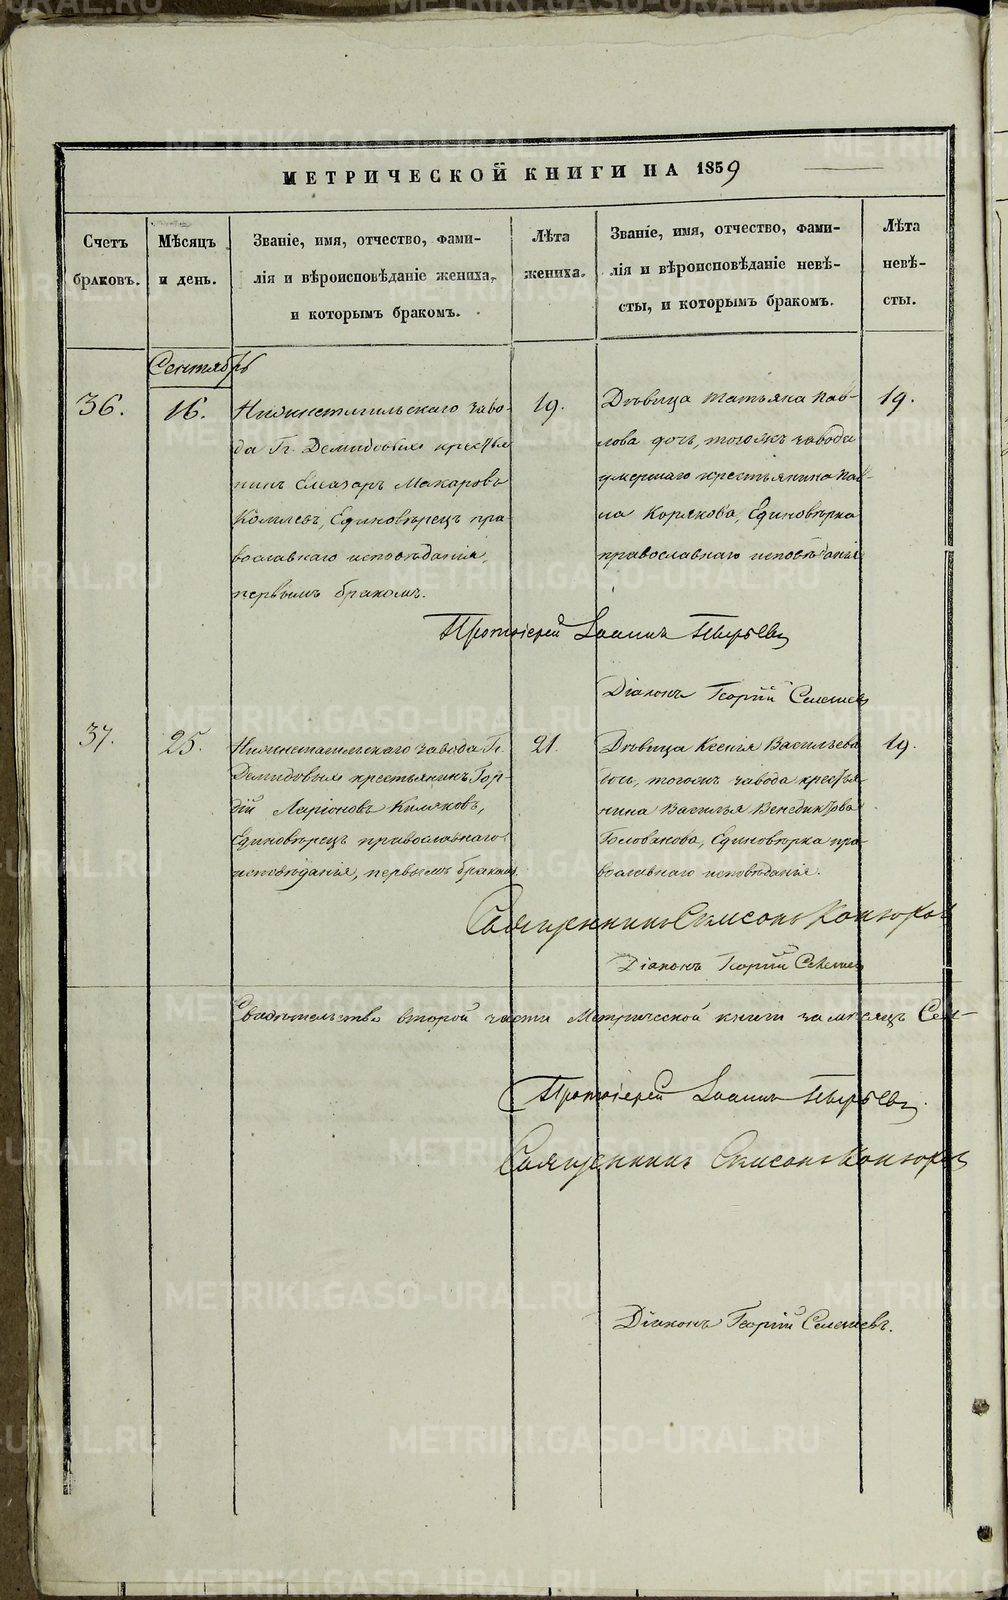 МЕТРИЧЕСКОЙ КНИГИ НА 1859
Счетъ
браковъ.
Мѣсяцъ
и день.
Званіе, имя, отчество, фами-
лія и вѣроисповѣданіе жениха,
и которымъ бракомъ.
Лѣта
жениха.
Званіе, имя, отчество, фами-
лія и вѣроисповѣданіе невѣ-
сты, и которымъ бракомъ.
Лѣта
невѣ-
сты.
Сентябрь
36.
16.
Нижнетагильскаго заво-
да Гг. Демидовыхъ крестья
нинъ Елиазаръ Макаровъ
Единовѣрецъ пра-
вославнаго исповѣданія,
первымъ бракомъ.
19.
Дѣвица Татьяна Пав-
лова дочь, тогожъ завода
умершаго крестьянина Пав-
ла Корякова, Единовѣрка
православнаго исповѣданія
19.
Протоіерей Іоаннъ Пырьевъ
Діаконъ Георгій
37.
25.
Нижнетагильскаго завода Гг.
Демидовыхъ крестьянинъ Гор-
дій Ларіоновъ
Единовѣрецъ православнаго
исповѣданія, первымъ бракомъ
21.
Дѣвица Ксенія Васильева
дочь, тогожъ завода крестья
нина Василья Венедиктова
Головакова, Единовѣрка пра-
вославнаго исповѣданія.
19.
Священникъ Симеонъ Конюховъ
Діаконъ Георгій
Свидѣтельство второй части Метрической книги за мѣсяцъ Сен-
Протоіерей Іоаннъ Пырьевъ.
Священникъ Симеонъ Конюховъ
Діаконъ Георгій
METRIKI.GASO-URAL.RU